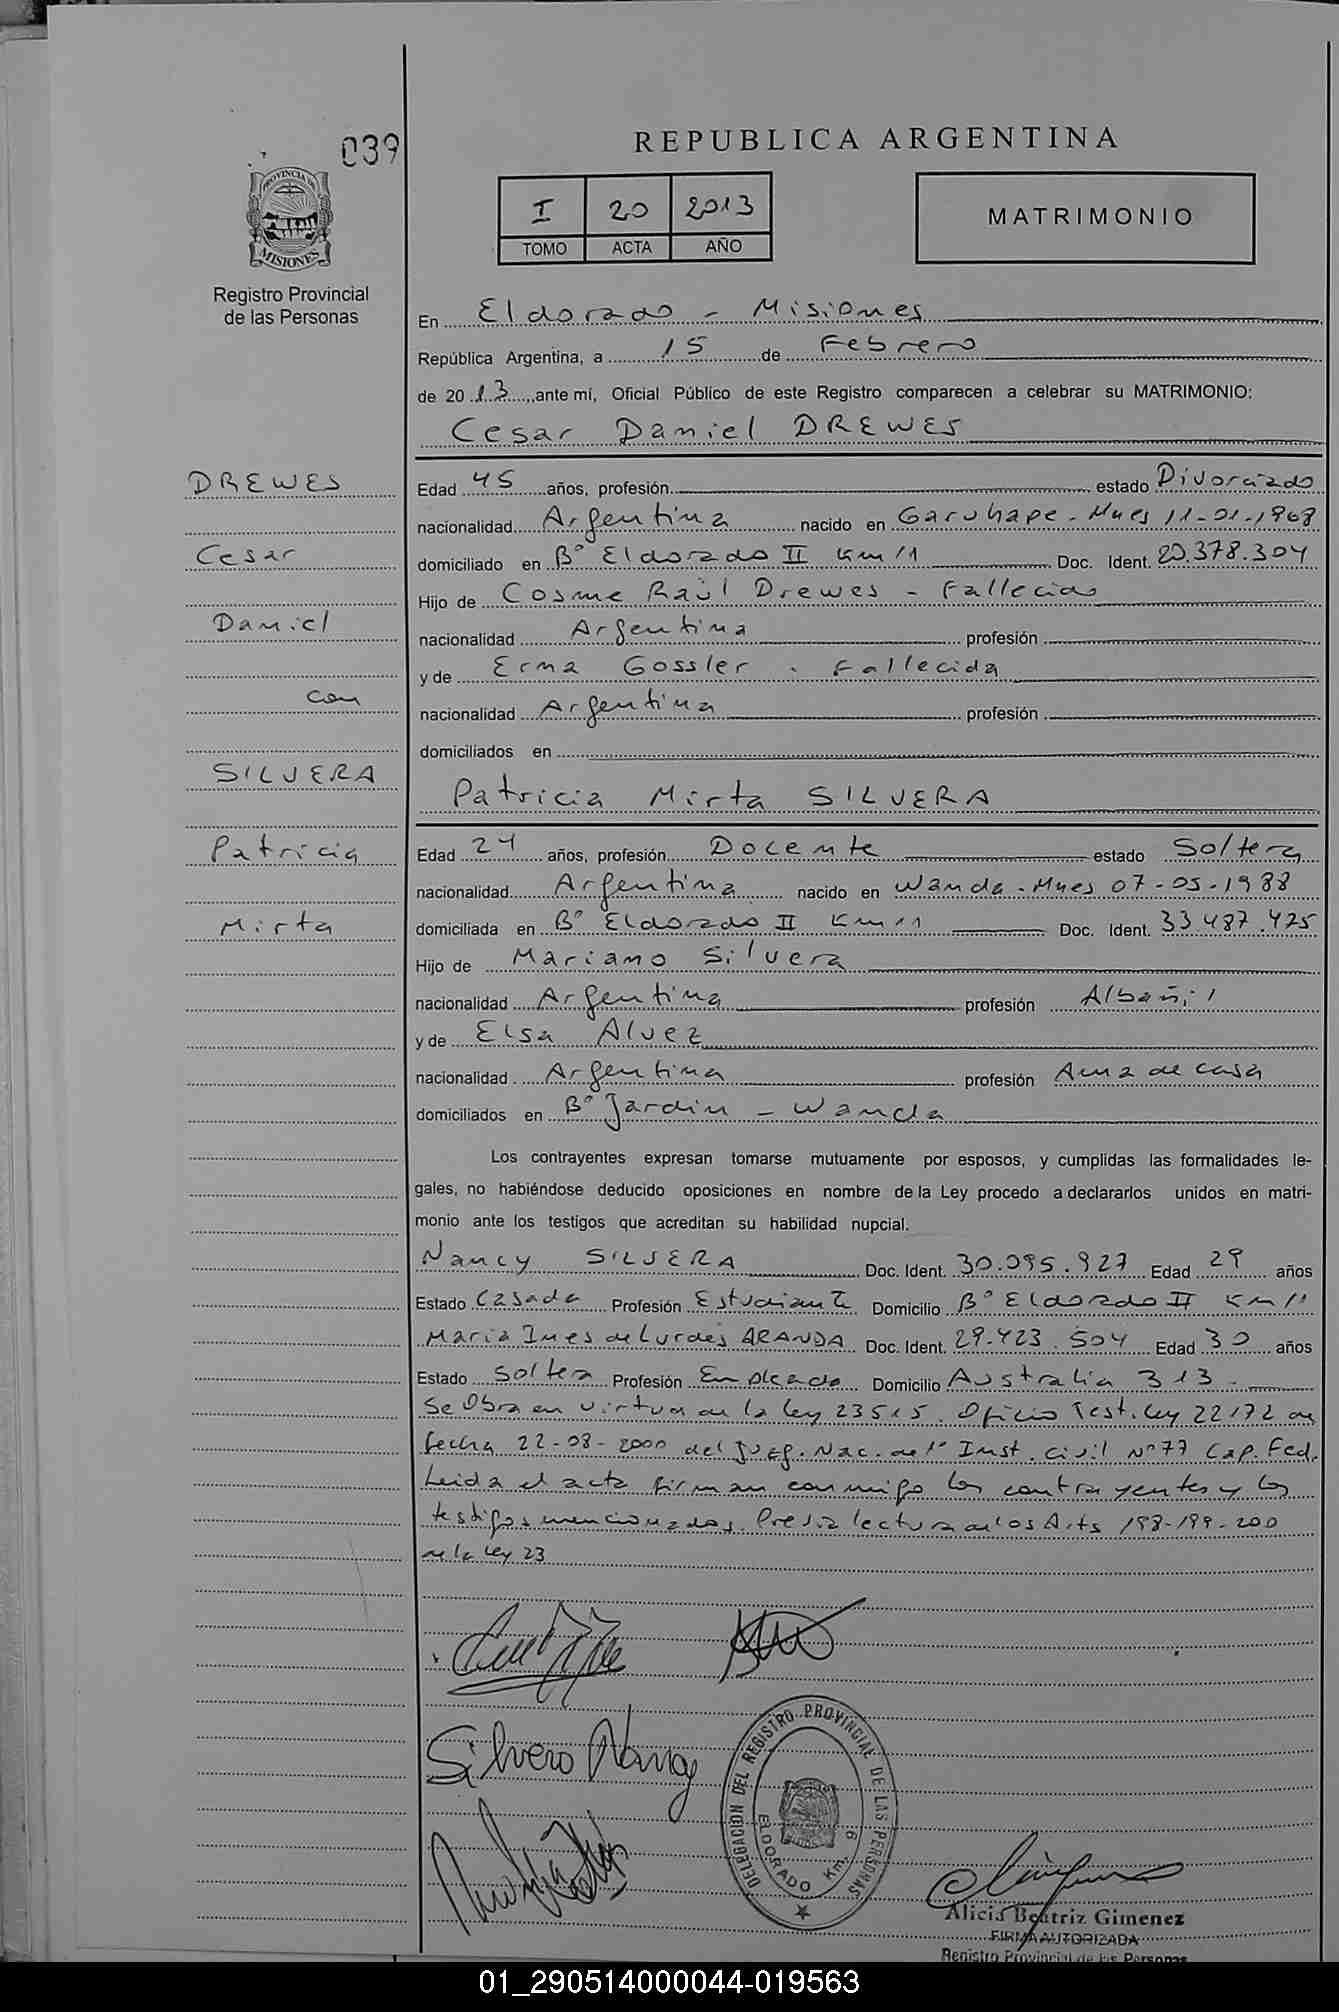 039
PROVINCIA DE
MISIONES
Registro Provincial
de las Personas
REPUBLICA ARGENTINA
I 20 2013
TOMO ACTA AÑO
MATRIMONIO
En Eldorado - Misiones
República Argentina, a 15 de Febrero
de 2013, ante mí, Oficial Público de este Registro comparecen a celebrar su MATRIMONIO:
Cesar Daniel DREWES
DREWES
Cesar
Daniel
con
SILVERA
Patricia
Mirta
Edad 45 años, profesión estado Divorciado
nacionalidad Argentina nacido en Garuhape - Mnes 11-01-1968
domiciliado en B° Eldorado II Km 11 Doc. Ident. 20.378.304
Hijo de Cosme Raúl Drewes - Fallecido
nacionalidad Argentina profesión
y de Erma Gossler - Fallecida
nacionalidad Argentina profesión
domiciliados en
Patricia Mirta SILVERA
Edad 24 años, profesión Docente estado Soltera
nacionalidad Argentina nacido en Wanda - Mnes 07-05-1988
domiciliada en B° Eldorado II Km 11 Doc. Ident. 33.487.425
Hijo de Mariano Silvera
nacionalidad Argentina profesión Albañil
y de Elsa Alvez
nacionalidad Argentina profesión Ama de casa
domiciliados en B° Jardin - Wanda
Los contrayentes expresan tomarse mutuamente por esposos, y cumplidas las formalidades le-
gales, no habiéndose deducido oposiciones en nombre de la Ley procedo a declararlos unidos en matri-
monio ante los testigos que acreditan su habilidad nupcial.
Nancy SILVERA Doc. Ident. 30.095.927 Edad 29 años
Estado Casada Profesión Estudiante Domicilio B° Eldorado II Km 11
Maria Ines de Lurdes ARANDA Doc. Ident. 29.423.504 Edad 30 años
Estado Soltera Profesión Empleada Domicilio Australia 313 -
Se Obra en virtud de la Ley 23515. Oficio Test. Ley 22172 de
fecha 22-08-2000 del Juzg. Nac. de 1° Inst. Civil N° 77 Cap. Fed.
Leida el acta firman conmigo los contrayentes y los
testigos mencionados. Previa lectura de los Arts 198-199-200
de la Ley 23
Silvero Nancy
DELEGACIÓN DEL REGISTRO PROVINCIAL DE LAS PERSONAS
ELDORADO Km. 6
Alicia Beatriz Gimenez
FIRMA AUTORIZADA
Registro Provincial de las Personas
01_290514000044-019563